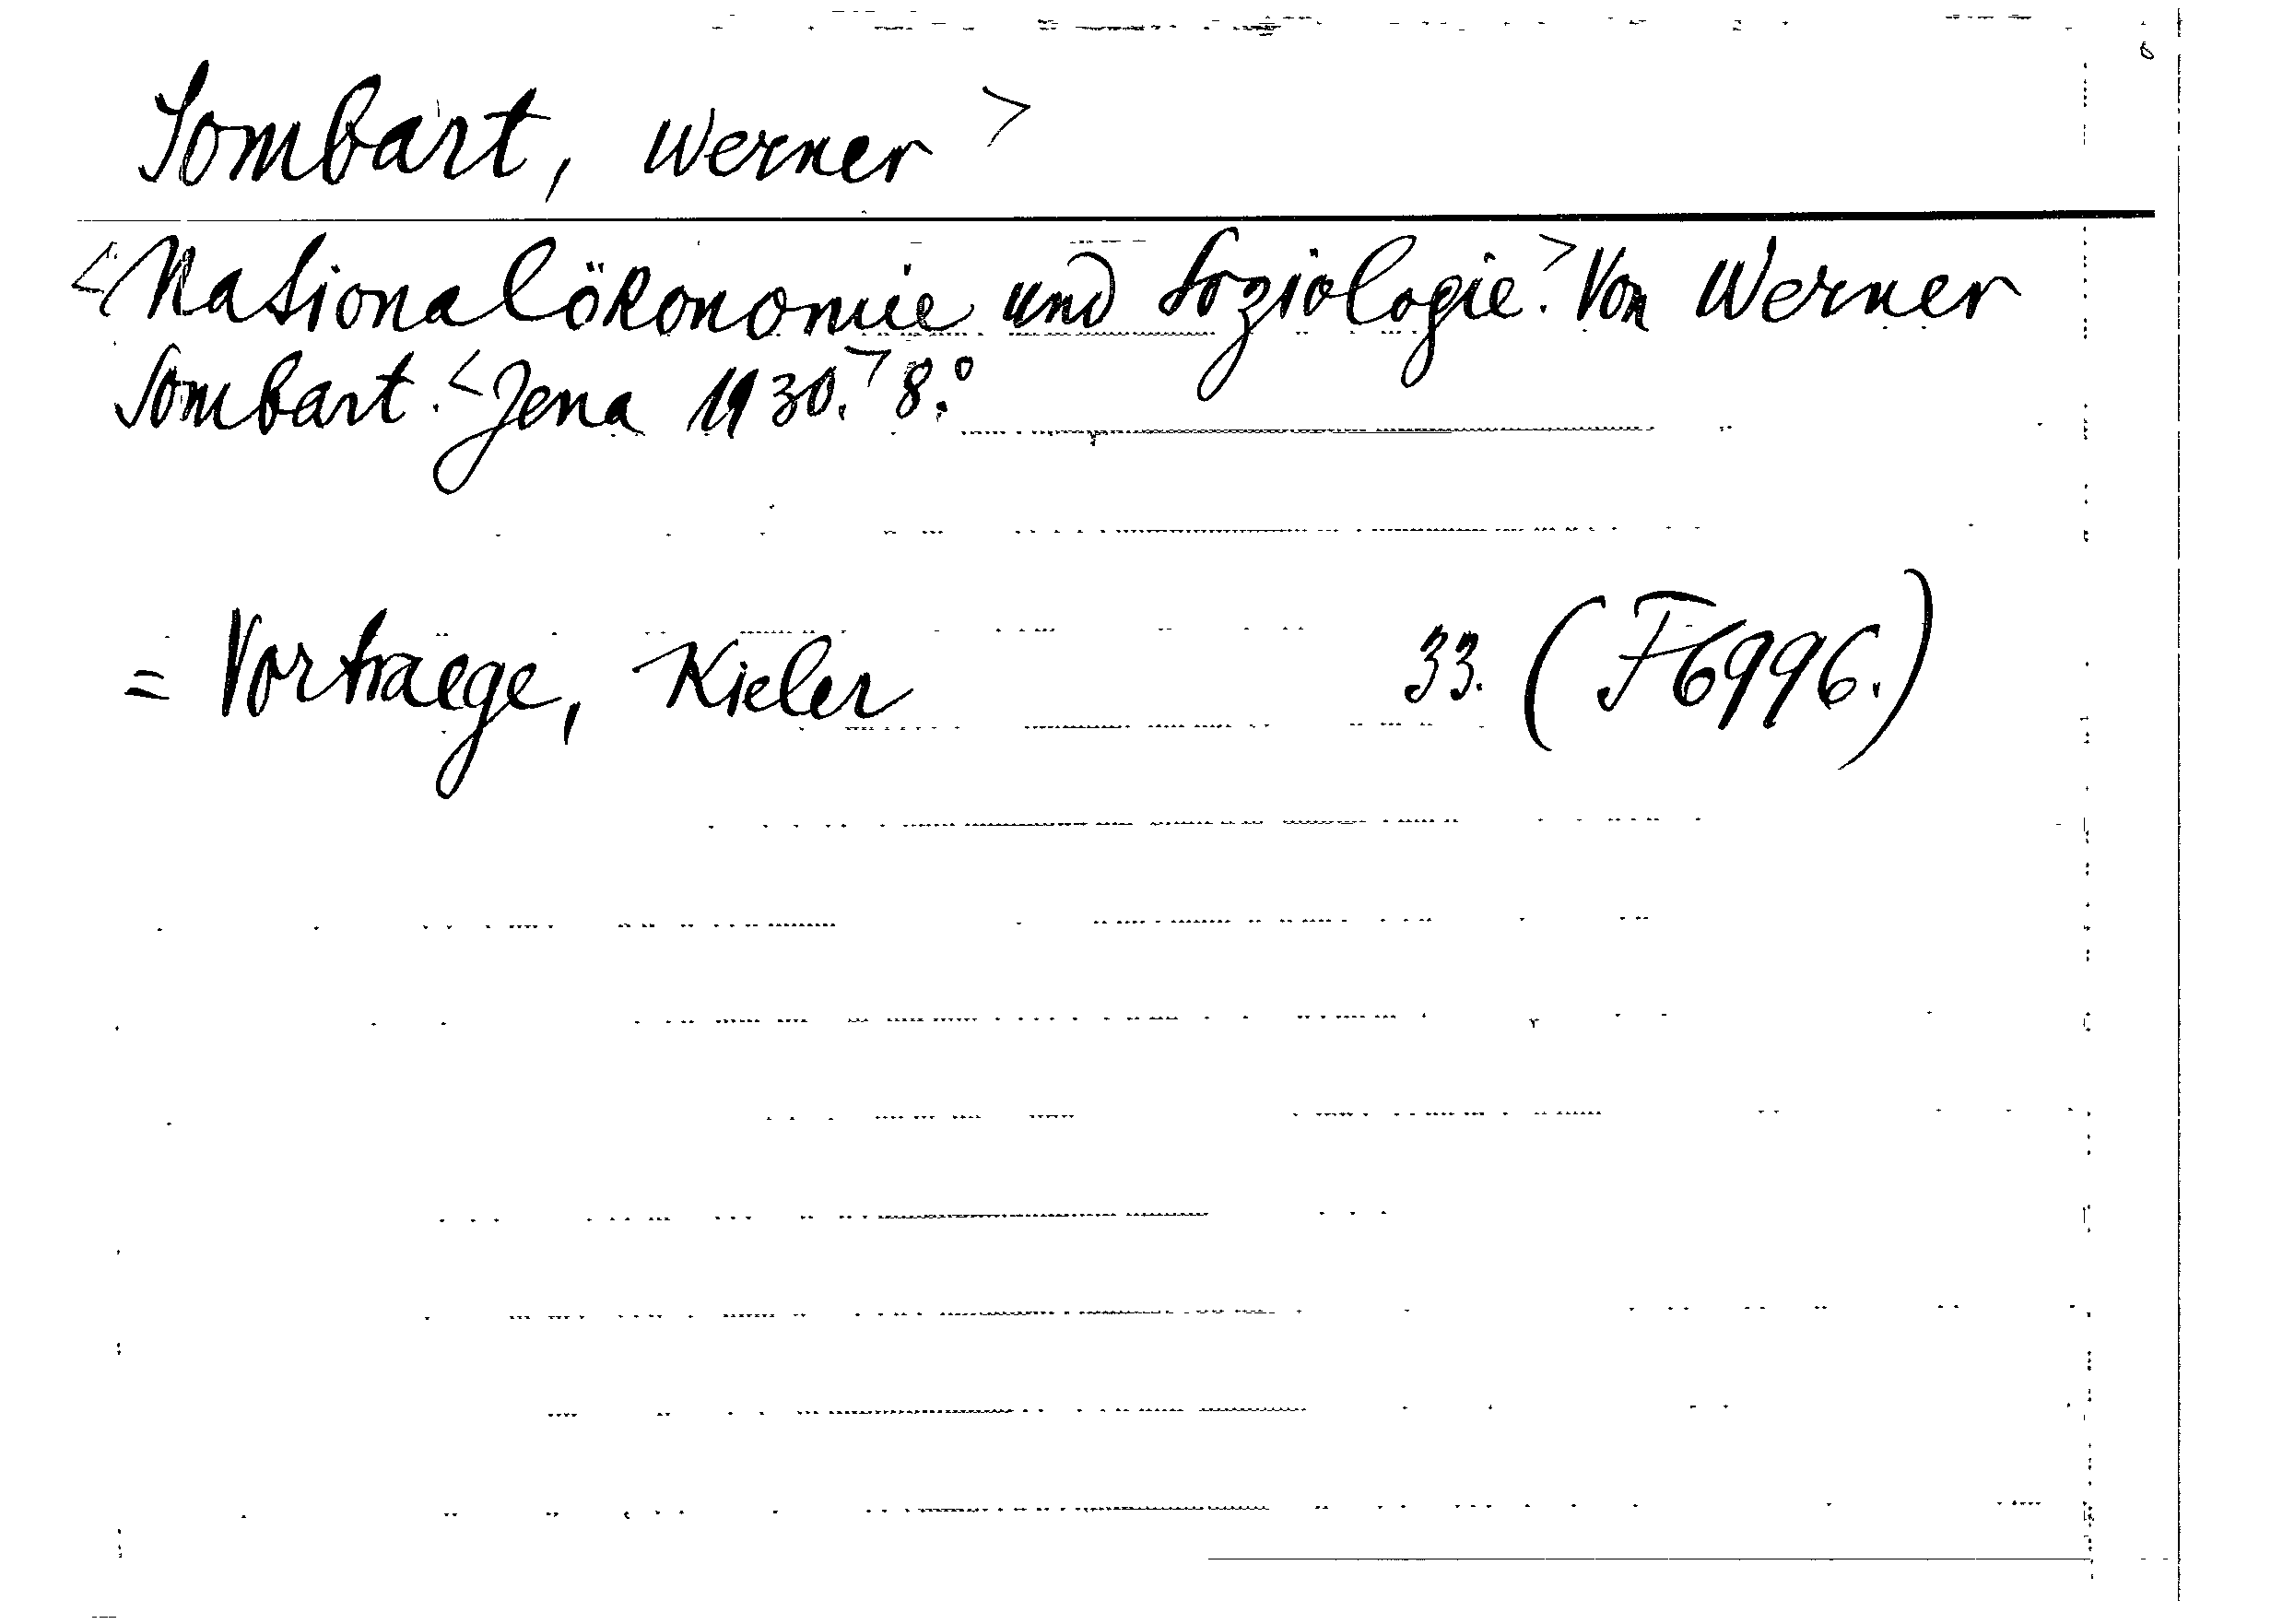 Sombart, Werner >
<Nationalökonomie und Soziologie.> Von Werner
Sombart. <Jena 1930.> 8.°
= Vortraege, Kieler 33. (F6996.)